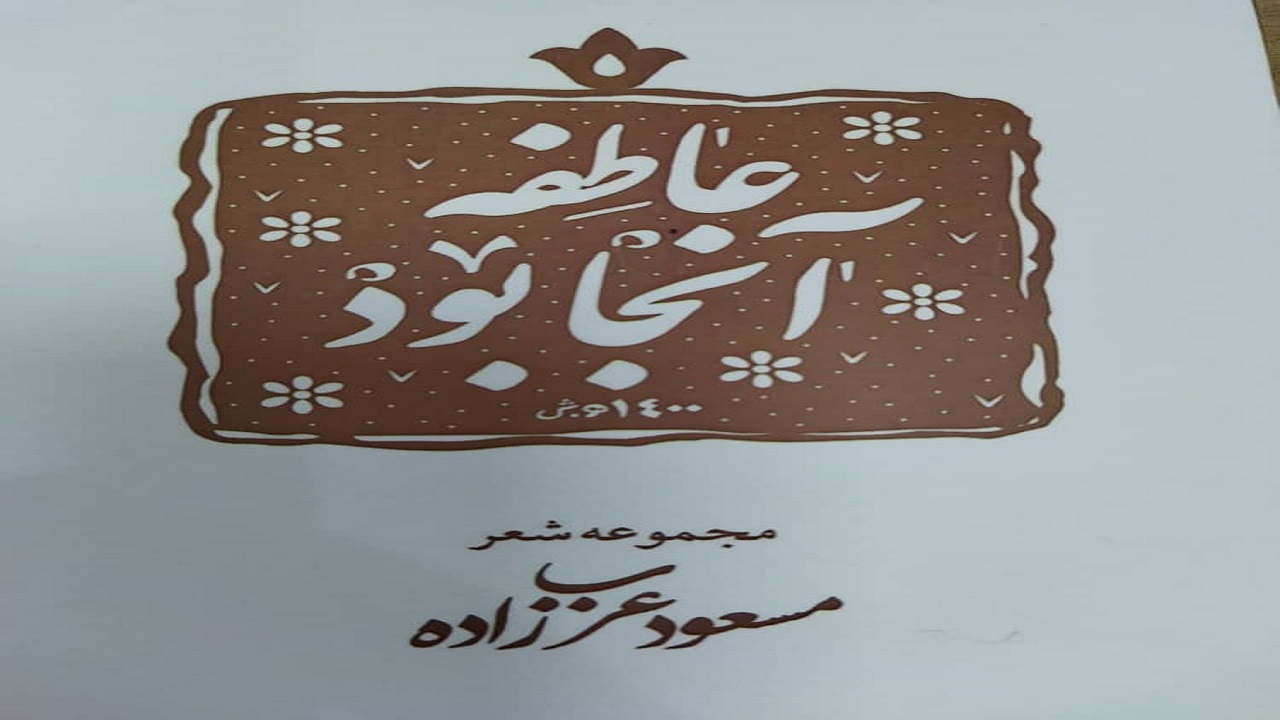 عاطفه
آنجا بود
۱۴۰۰ ه.ش
مجموعه شعر
مسعود عرب‌زاده